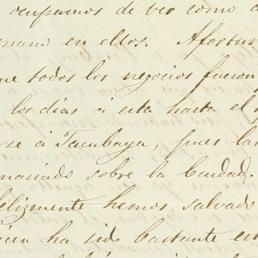 ocuparnos de ver como
mano en ellos. Afortu
que todos los negocios fueron
los dias á esta hasta el
se á Tacubaya, pues la
masiado sobre la Ciudad.
elizmente hemos salvado
ien ha sido bastante en